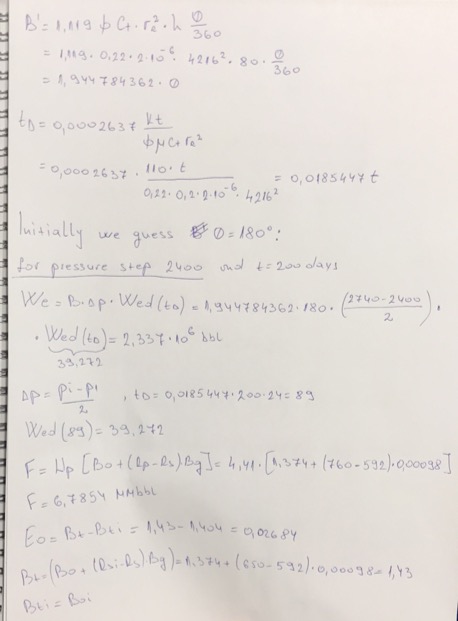 B' = 1,119 φ Ct · re² · h θ/360
= 1,119 · 0,22 · 2·10⁻⁶ · 4216² · 80 · θ/360
= 1,944784362 · θ
tD = 0,0002637 kt/φμCtre²
= 0,0002637 · 110·t/0,22·0,2·2·10⁻⁶·4216² = 0,0185447 t
Initially we guess θ=180°:
for pressure step 2400 and t=200 days
We = B·Δp·Wed(tD) = 1,944784362·180·(2740-2400/2)·
· Wed(tD) = 2,337·10⁶ bbl
39,272
Δp = pi-p'/2 , tD = 0,0185447·200·24 = 89
Wed(89) = 39,272
F = Np [Bo + (Rp-Rs)Bg] = 4,41·[1,374+(760-592)·0,00098]
F = 6,7854 MMbbl
Eo = Bt-Bti = 1,43-1,404 = 0,02684
Bt = (Bo + (Rsi-Rs)Bg) = 1,374+(650-592)·0,00098 = 1,43
Bti = Boi